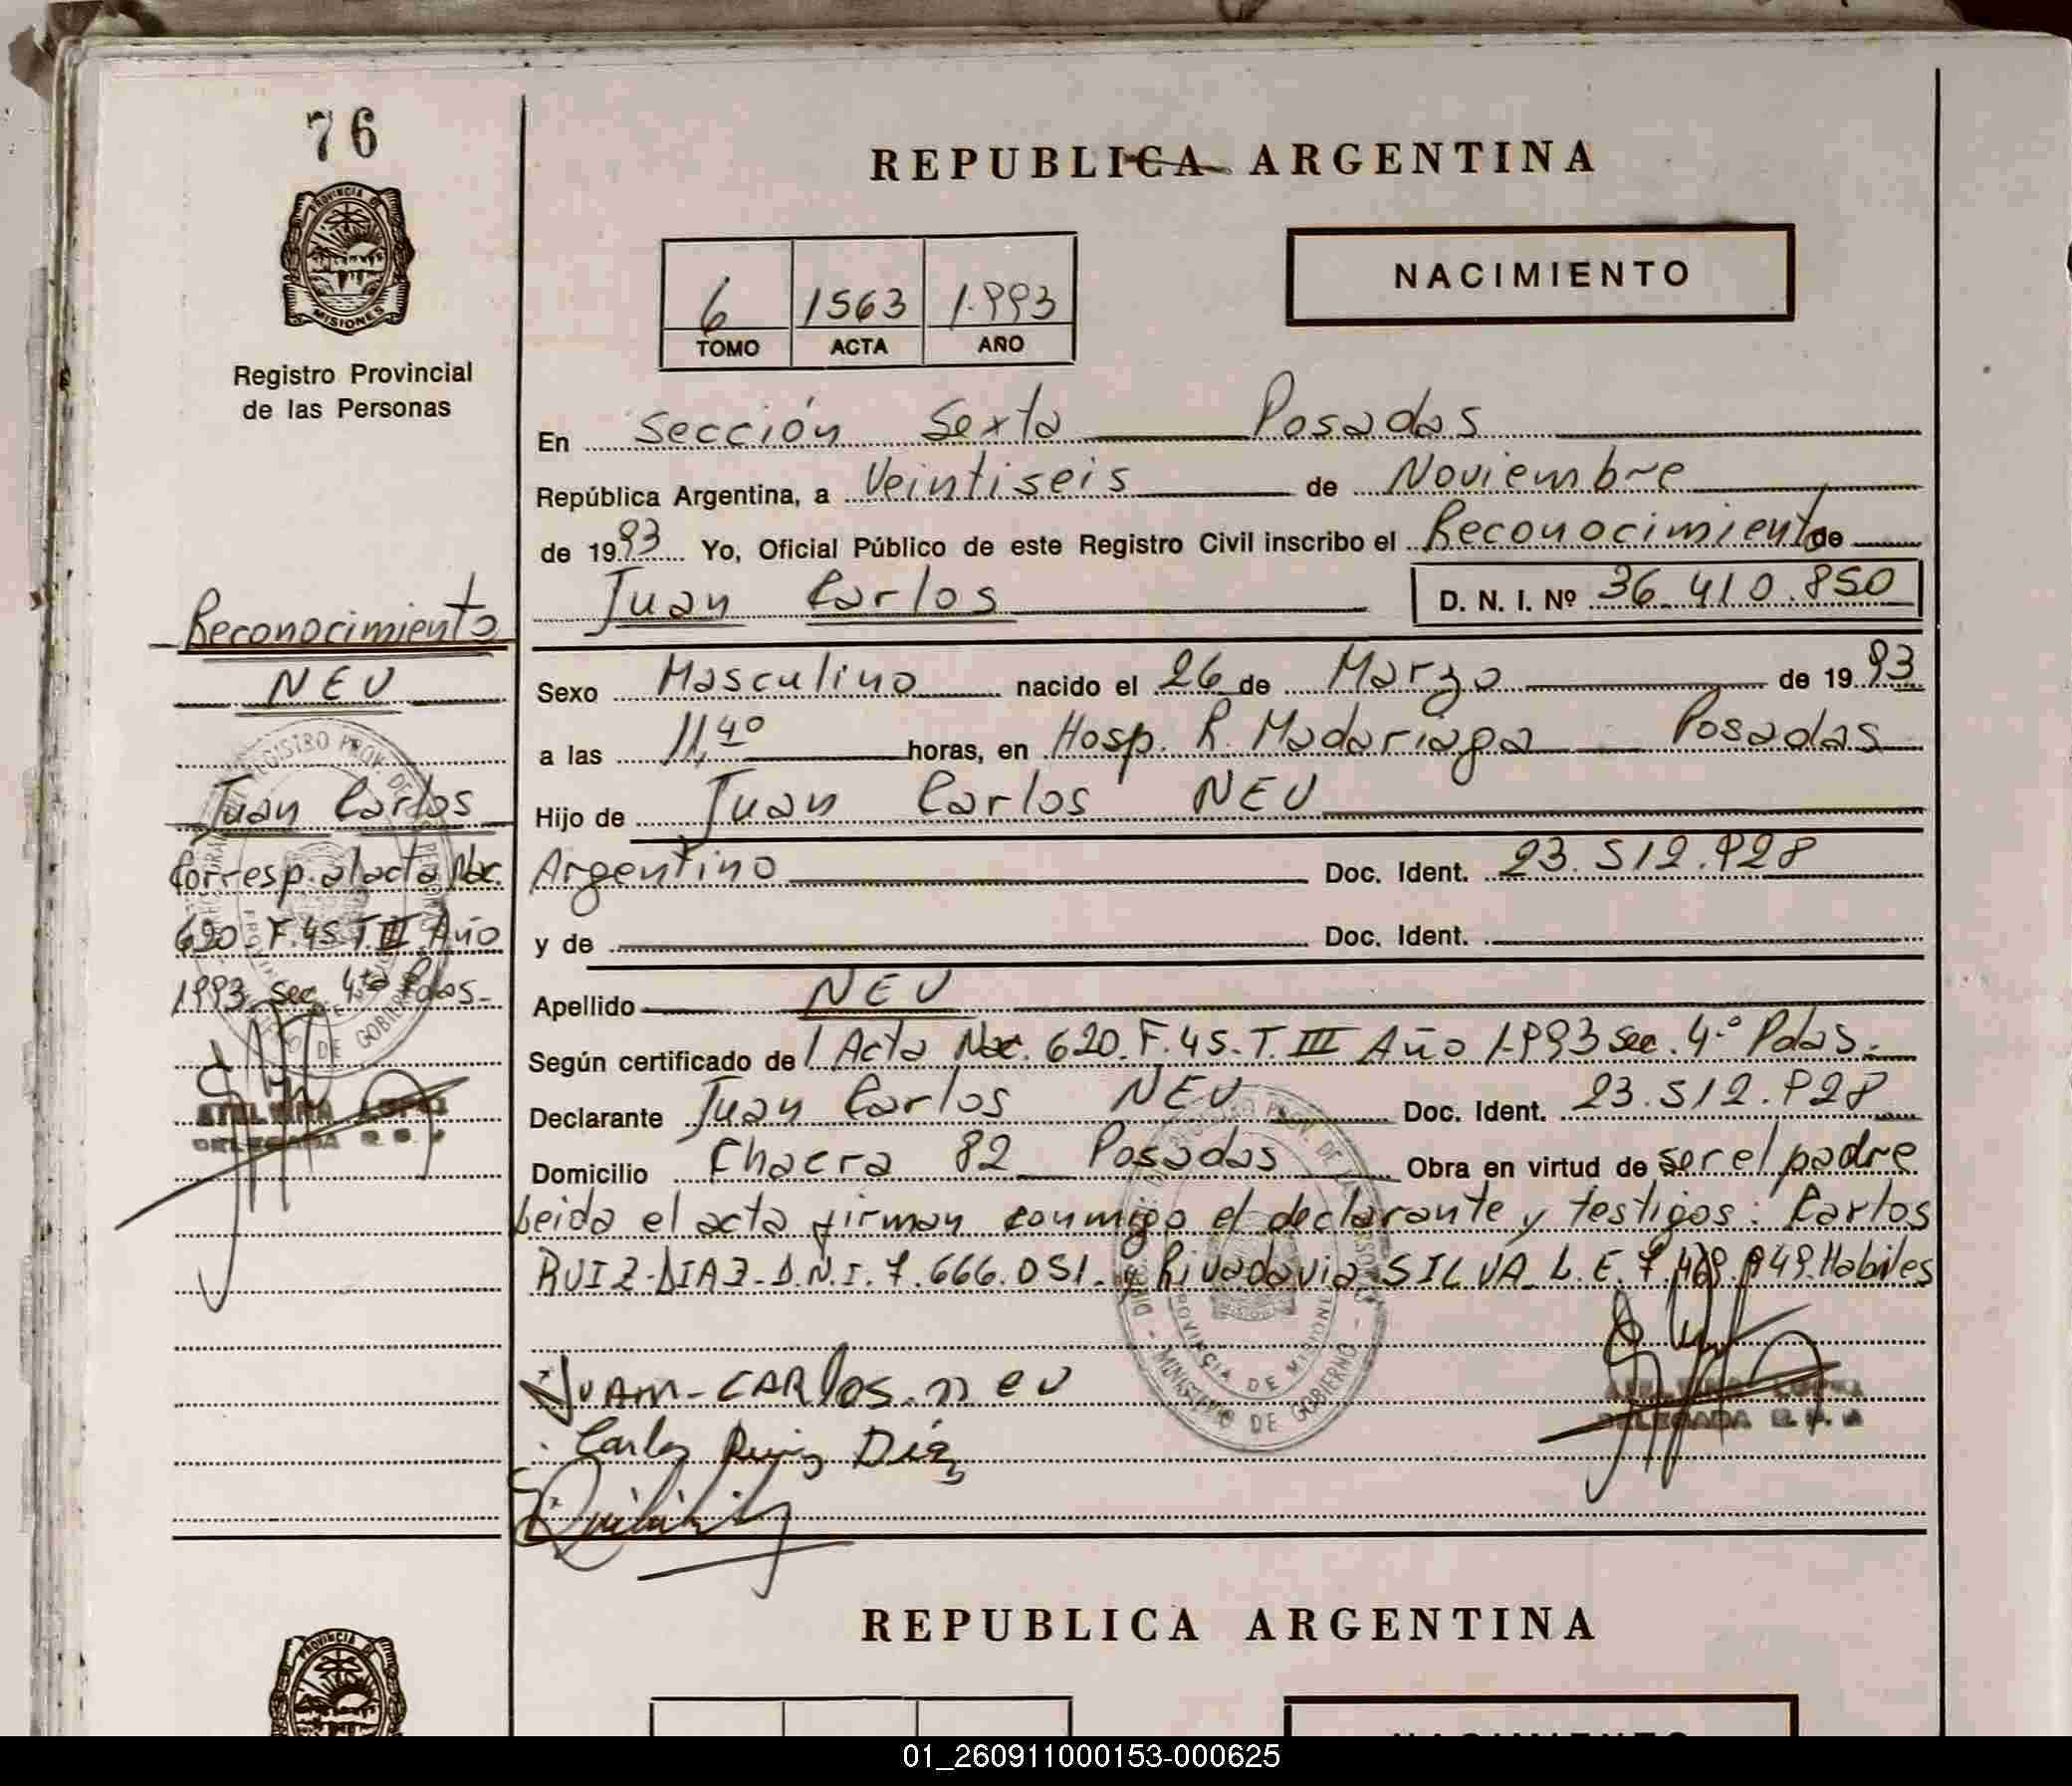 76
REPUBLICA ARGENTINA
PROVINCIA DE
MISIONES
Registro Provincial
de las Personas
6 1563 1.993
TOMO ACTA AÑO
NACIMIENTO
En Sección Sexta Posadas
República Argentina, a Veintiseis de Noviembre
de 1993 Yo, Oficial Público de este Registro Civil inscribo el Reconocimiento de
Juan Carlos D. N. I. Nº 36.410.850
Sexo Masculino nacido el 26 de Marzo de 1993
a las 11,40 horas, en Hosp. R. Madariaga Posadas
Hijo de Juan Carlos NEU
Argentino Doc. Ident. 23.512.928
y de Doc. Ident.
Apellido NEU
Según certificado de / Acta Nac. 620. F. 45. T. III Año 1.993 Sec. 4.º Pdas.
Declarante Juan Carlos NEU Doc. Ident. 23.512.928
Domicilio Chacra 82 Posadas Obra en virtud de ser el padre
Leida el acta firman conmigo el declarante y testigos: Carlos
RUIZ-DIAZ-D.N.I. 7.666.051. y Rivadavia SILVA L.E. Habiles
JUAM-CARlos. neu
Carlos Ruiz Díaz
Reconocimiento
NEU
Juan Carlos
Corresp. al acta Nac.
620. F. 45 T. III Año
1993. Sec. 4ta Pdas.
DELEGADA
DELEGADA
MINISTERIO DE GOBIERNO
PROVINCIA DE MISIONES
REPUBLICA ARGENTINA
01_260911000153-000625